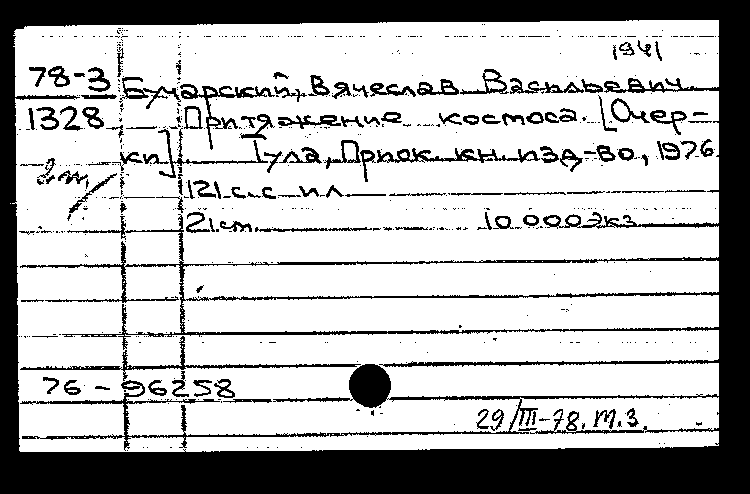 1941
78-3 Бучарский, Вячеслав Васильевич.
1328 Притяжение космоса. [Очер-
ки]. Тула, Приок. кн. изд-во, 1976.
2т
121 с. с ил.
21 см. 10 000 экз.
76-96258
29/III-78. т.з.